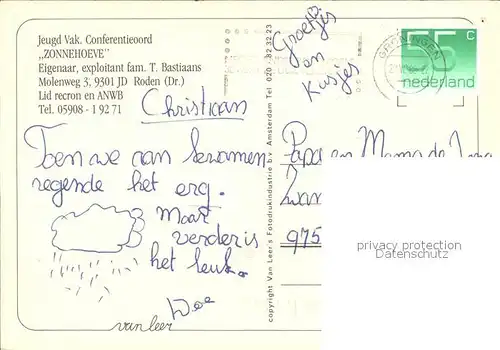 Jeugd Vak. Conferentieoord
,,ZONNEHOEVE''
Eigenaar, exploitant fam. T. Bastiaans
Molenweg 3, 9301 JD Roden (Dr.)
Lid recron en ANWB
Tel. 05908 - 1 92 71
Christiaan
Toen we aan kwamen
regende het erg.
Maar
verder is
het leuk.
Doe
van leer
copyright Van Leer's Fotodrukindustrie b.v. Amsterdam Tel 020 - 82 32 23
Groetjes
en
Kusjes
GRONINGEN
55 c
nederland
Papa en Mama de
975
privacy protection
Datenschutz